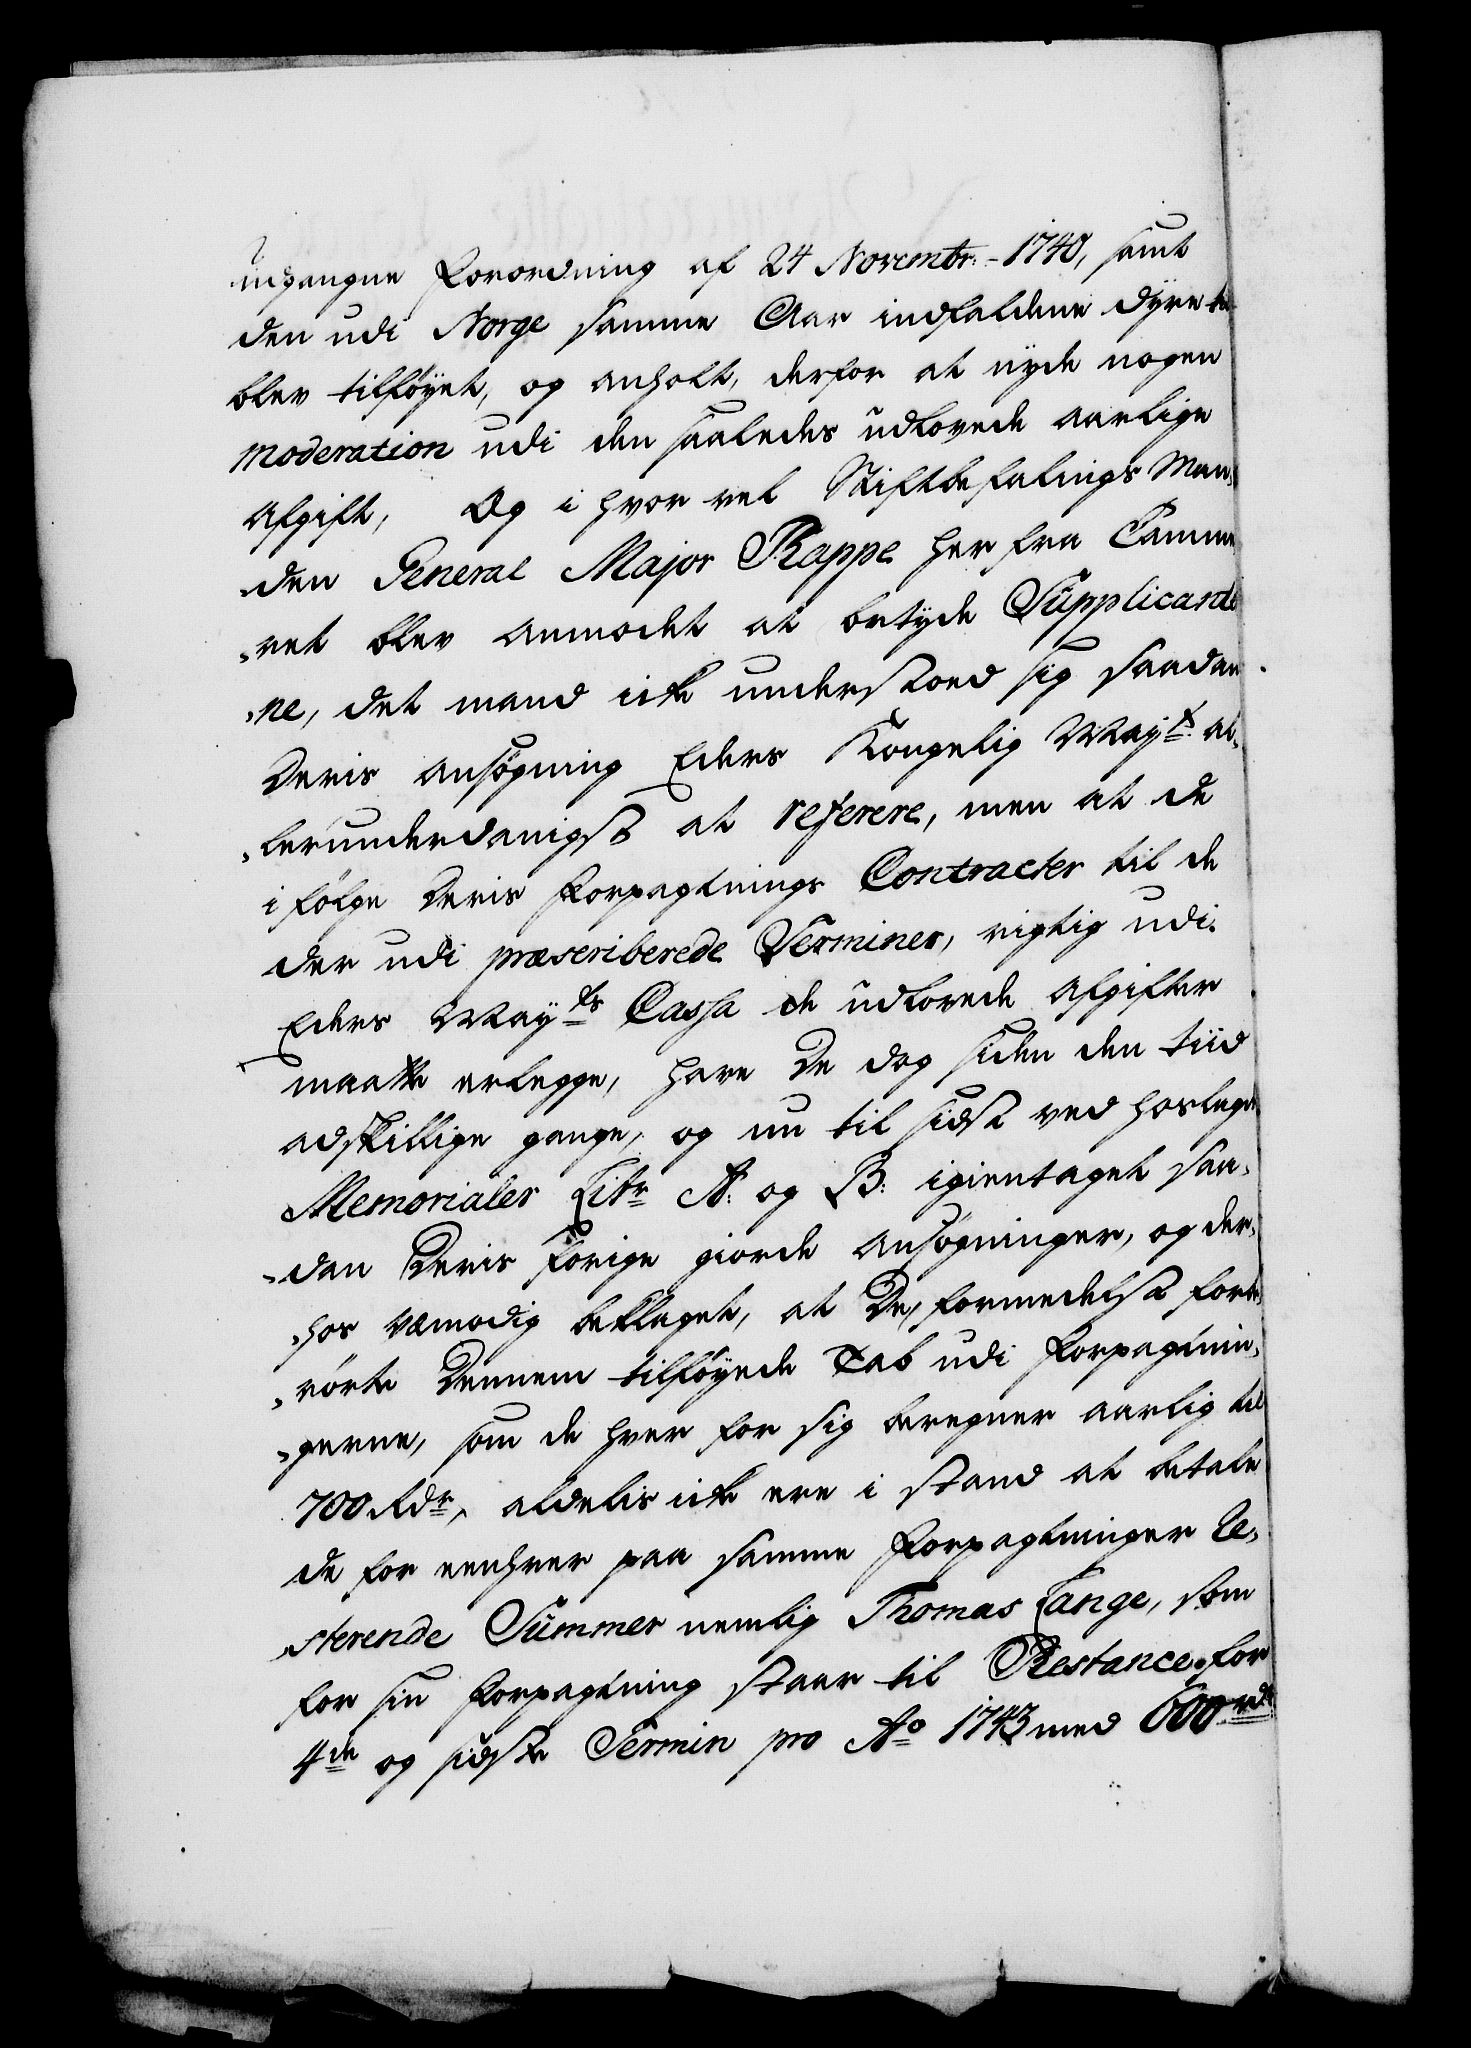 udgangne Forordning af 24 Novembr: 1740, samt
den udi Norge samme Aar indfaldene dyre tid
blev tilføyet, og anholt, derfor at nyde nogen
moderation udi den saaledes udlovede aarlige
Afgift, Og i hvor vel Stiftbefalings Man,
den General Major Rappe her fra Camme
,ret blev anmodet at betyde Supplicante
,ne, det mand icke understoed sig saadan
Deris ansøgning Eders Kongelig Mayts al,
,lerunderdanigst at referere, men at de
i følge Deris Forpagtnings Contracter til de
der udi præscriberede Terminer, rigtig udi
Eders Mayts Cassa de udlovede Afgifter
maatte erlegge, have De dog siden den tiid
adskillige gange, og nu til sidst ved hoslagde
Memorialer Litr A: og B: igientaget saa,
,dan Deris forige giorde Ansøgninger, og der,
,hos væmodig beklaget, at De, formedelst forbe,
,rørte Dennem tilføyede Tab udi Forpagtnin,
,gerne, som de hver for sig beregner aarlig til
700 Rdr, aldelis icke ere i stand at betale
de for eenhver paa samme Forpagtninger Re,
,sterende Summer nemlig Thomas Lange, som
for sin Forpagtning staar til Restance for
4de og sidste Termin pro Ao 1743 med 600 rdr